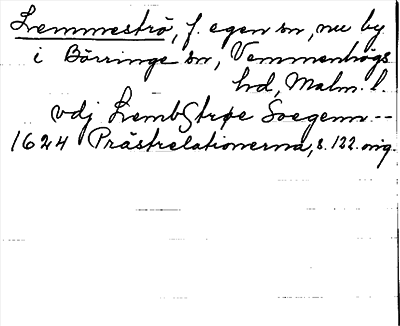 Lemmeströ, f. egen sn, nu by
i Börringe sn, Vemmenhögs
hd, Malm. l.
vdj LembStrøe Soegenn --
1624 Prästrelationerna, s. 122. orig.